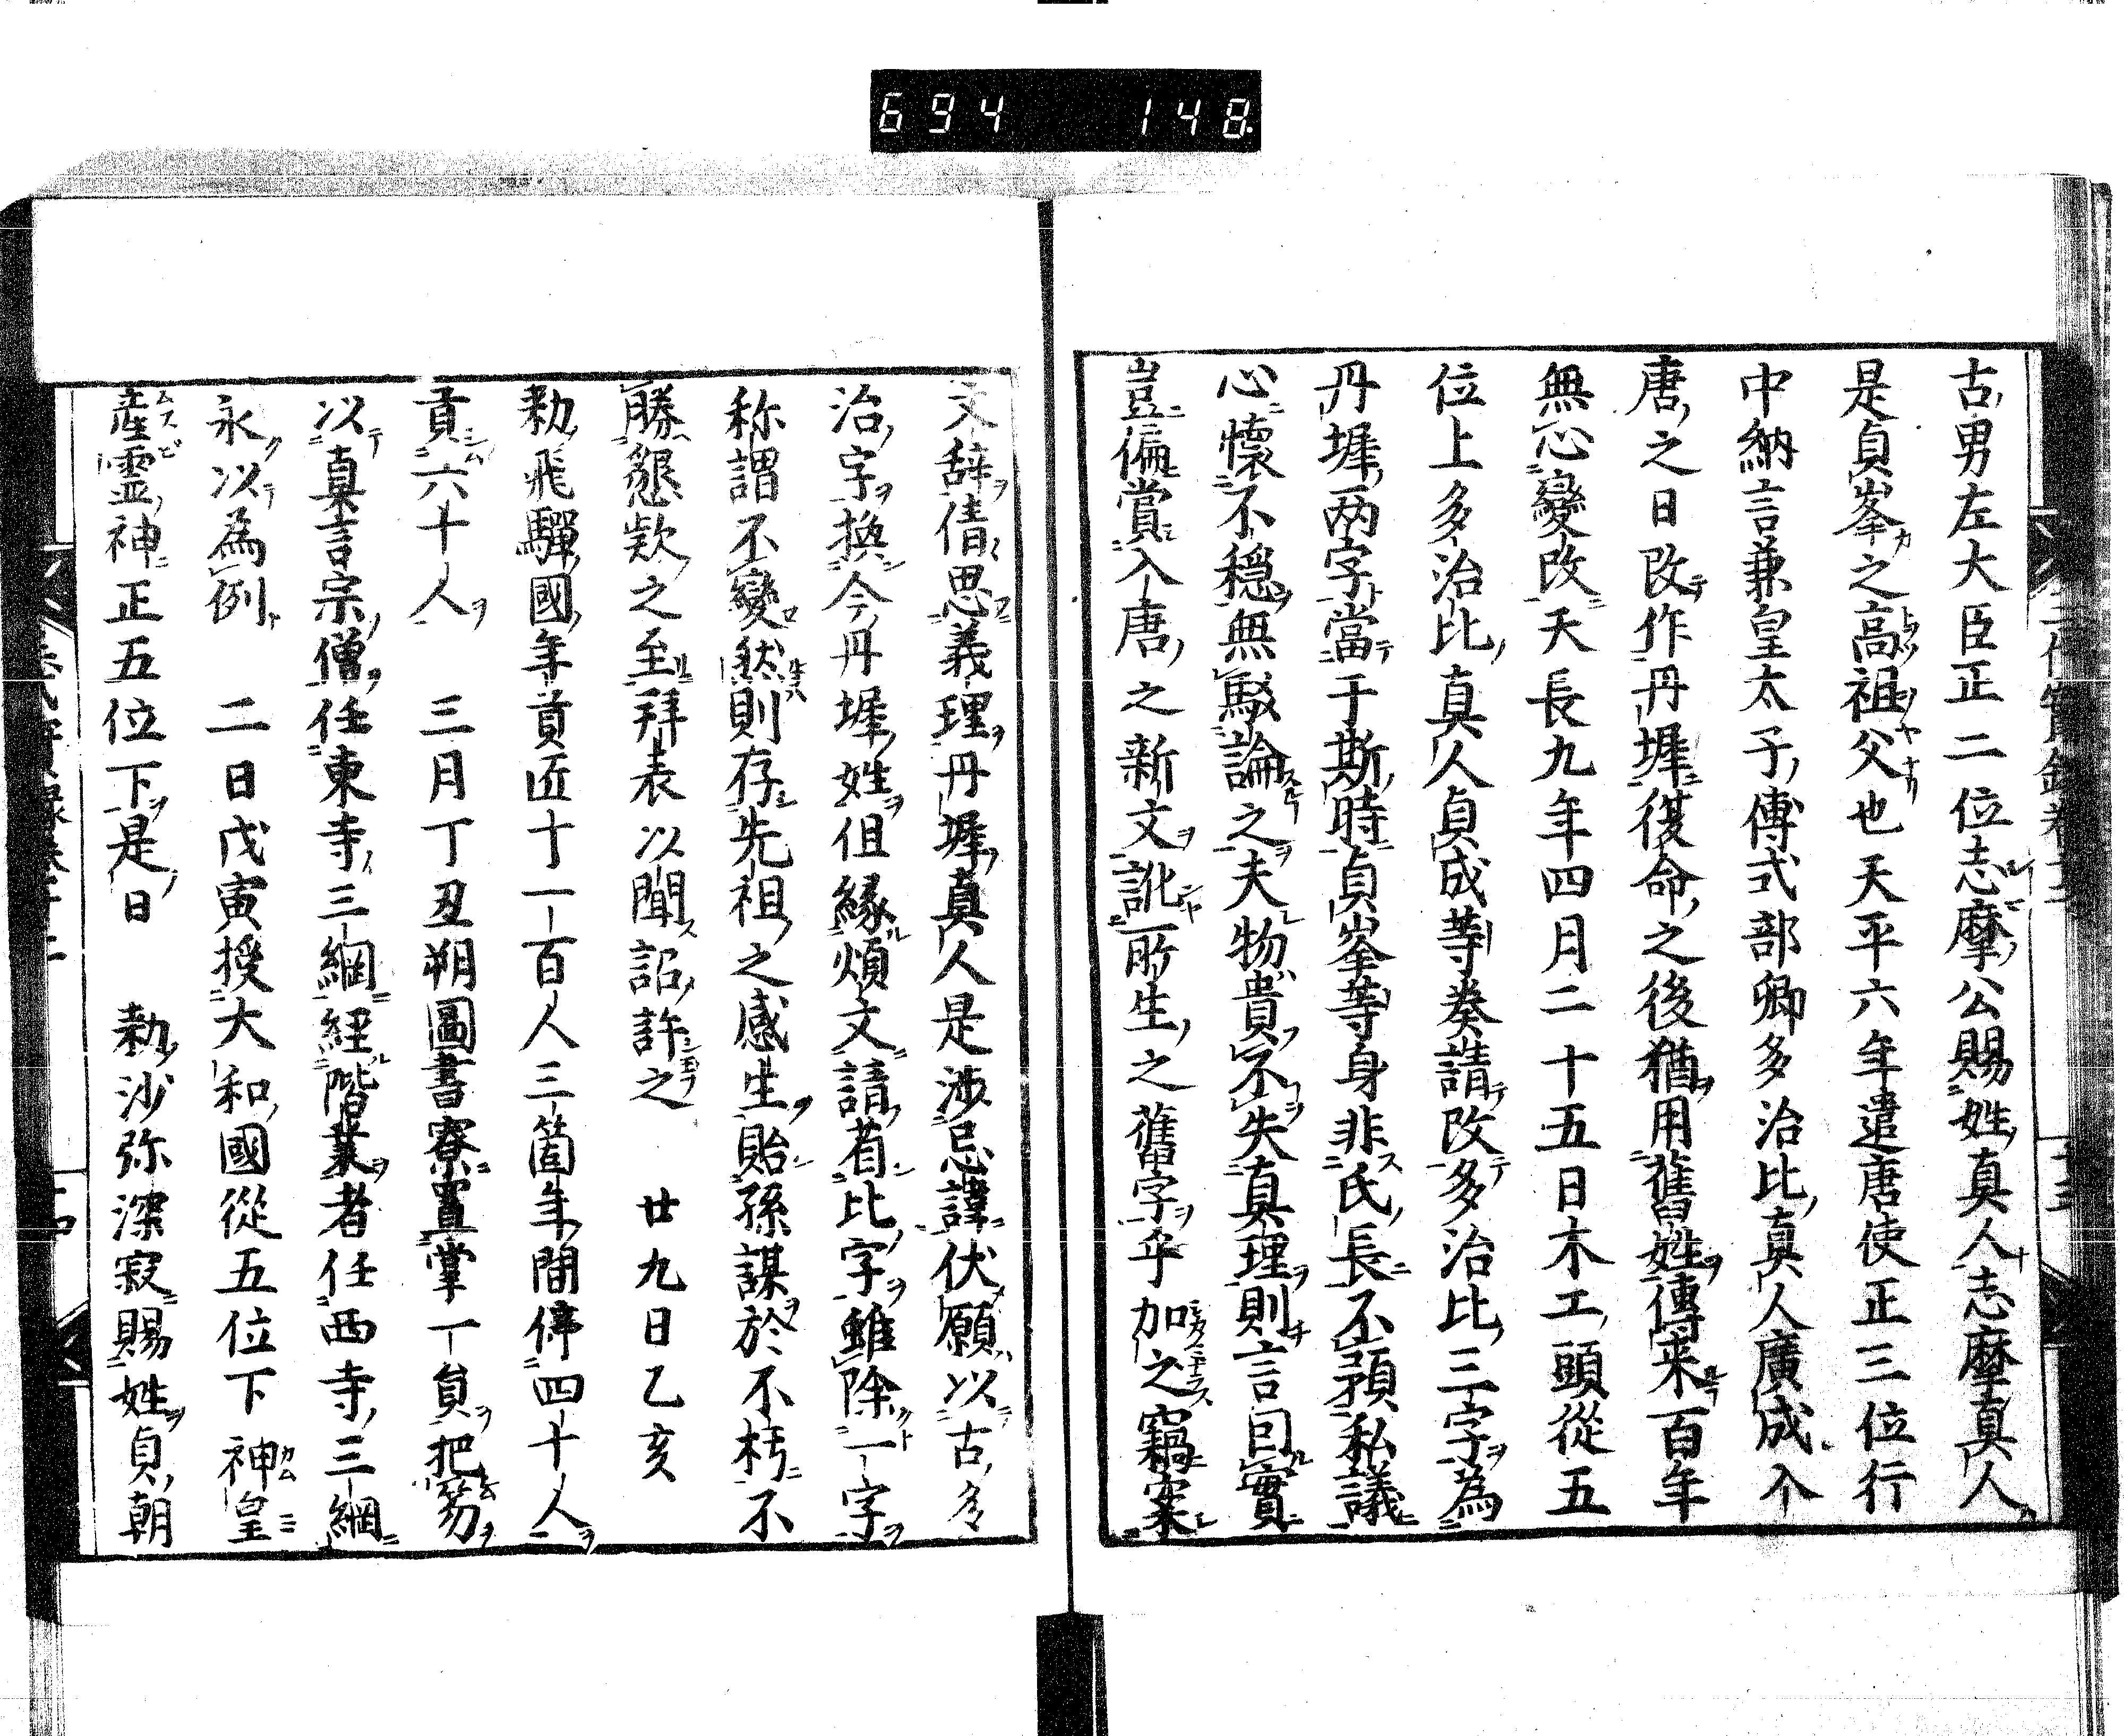 694 148.
古男左大臣正二位志摩公賜姓真人志摩真人
是貞峯之高祖父也天平六年遣唐使正三位行
中納言兼皇太子傅式部卿多治比真人廣成入
唐之日改作丹墀復命之後猶用舊姓傳来百年
無心變改天長九年四月二十五日木工頭從五
位上多治比真人貞成等奏請改多治比三字為
丹墀两字當于斯時貞峯等身非氏長不預私議
心懷不穏無駁論之夫物貴不失真理則言回實
豈偏賞入唐之新文訛所生之舊字乎加之竊案
文辞倩思義理丹墀真人是渉忌諱伏願以古多
治字換今丹墀姓但縁煩文請省比字雖除一字
称謂不變然則存先祖之感生貽孫謀於不朽不
勝懇欵之至拜表以聞詔許之 廿九日乙亥
勅飛驒國年貢匠丁一百人三箇年間停四十人
貢六十人 三月丁丑朔圖書寮置掌一員把笏
以真言宗僧任東寺三綱経階業者任西寺三綱
永以為例 二日戊寅授大和國從五位下神皇
産靈神正五位下是日 勅沙弥深寂賜姓貞朝